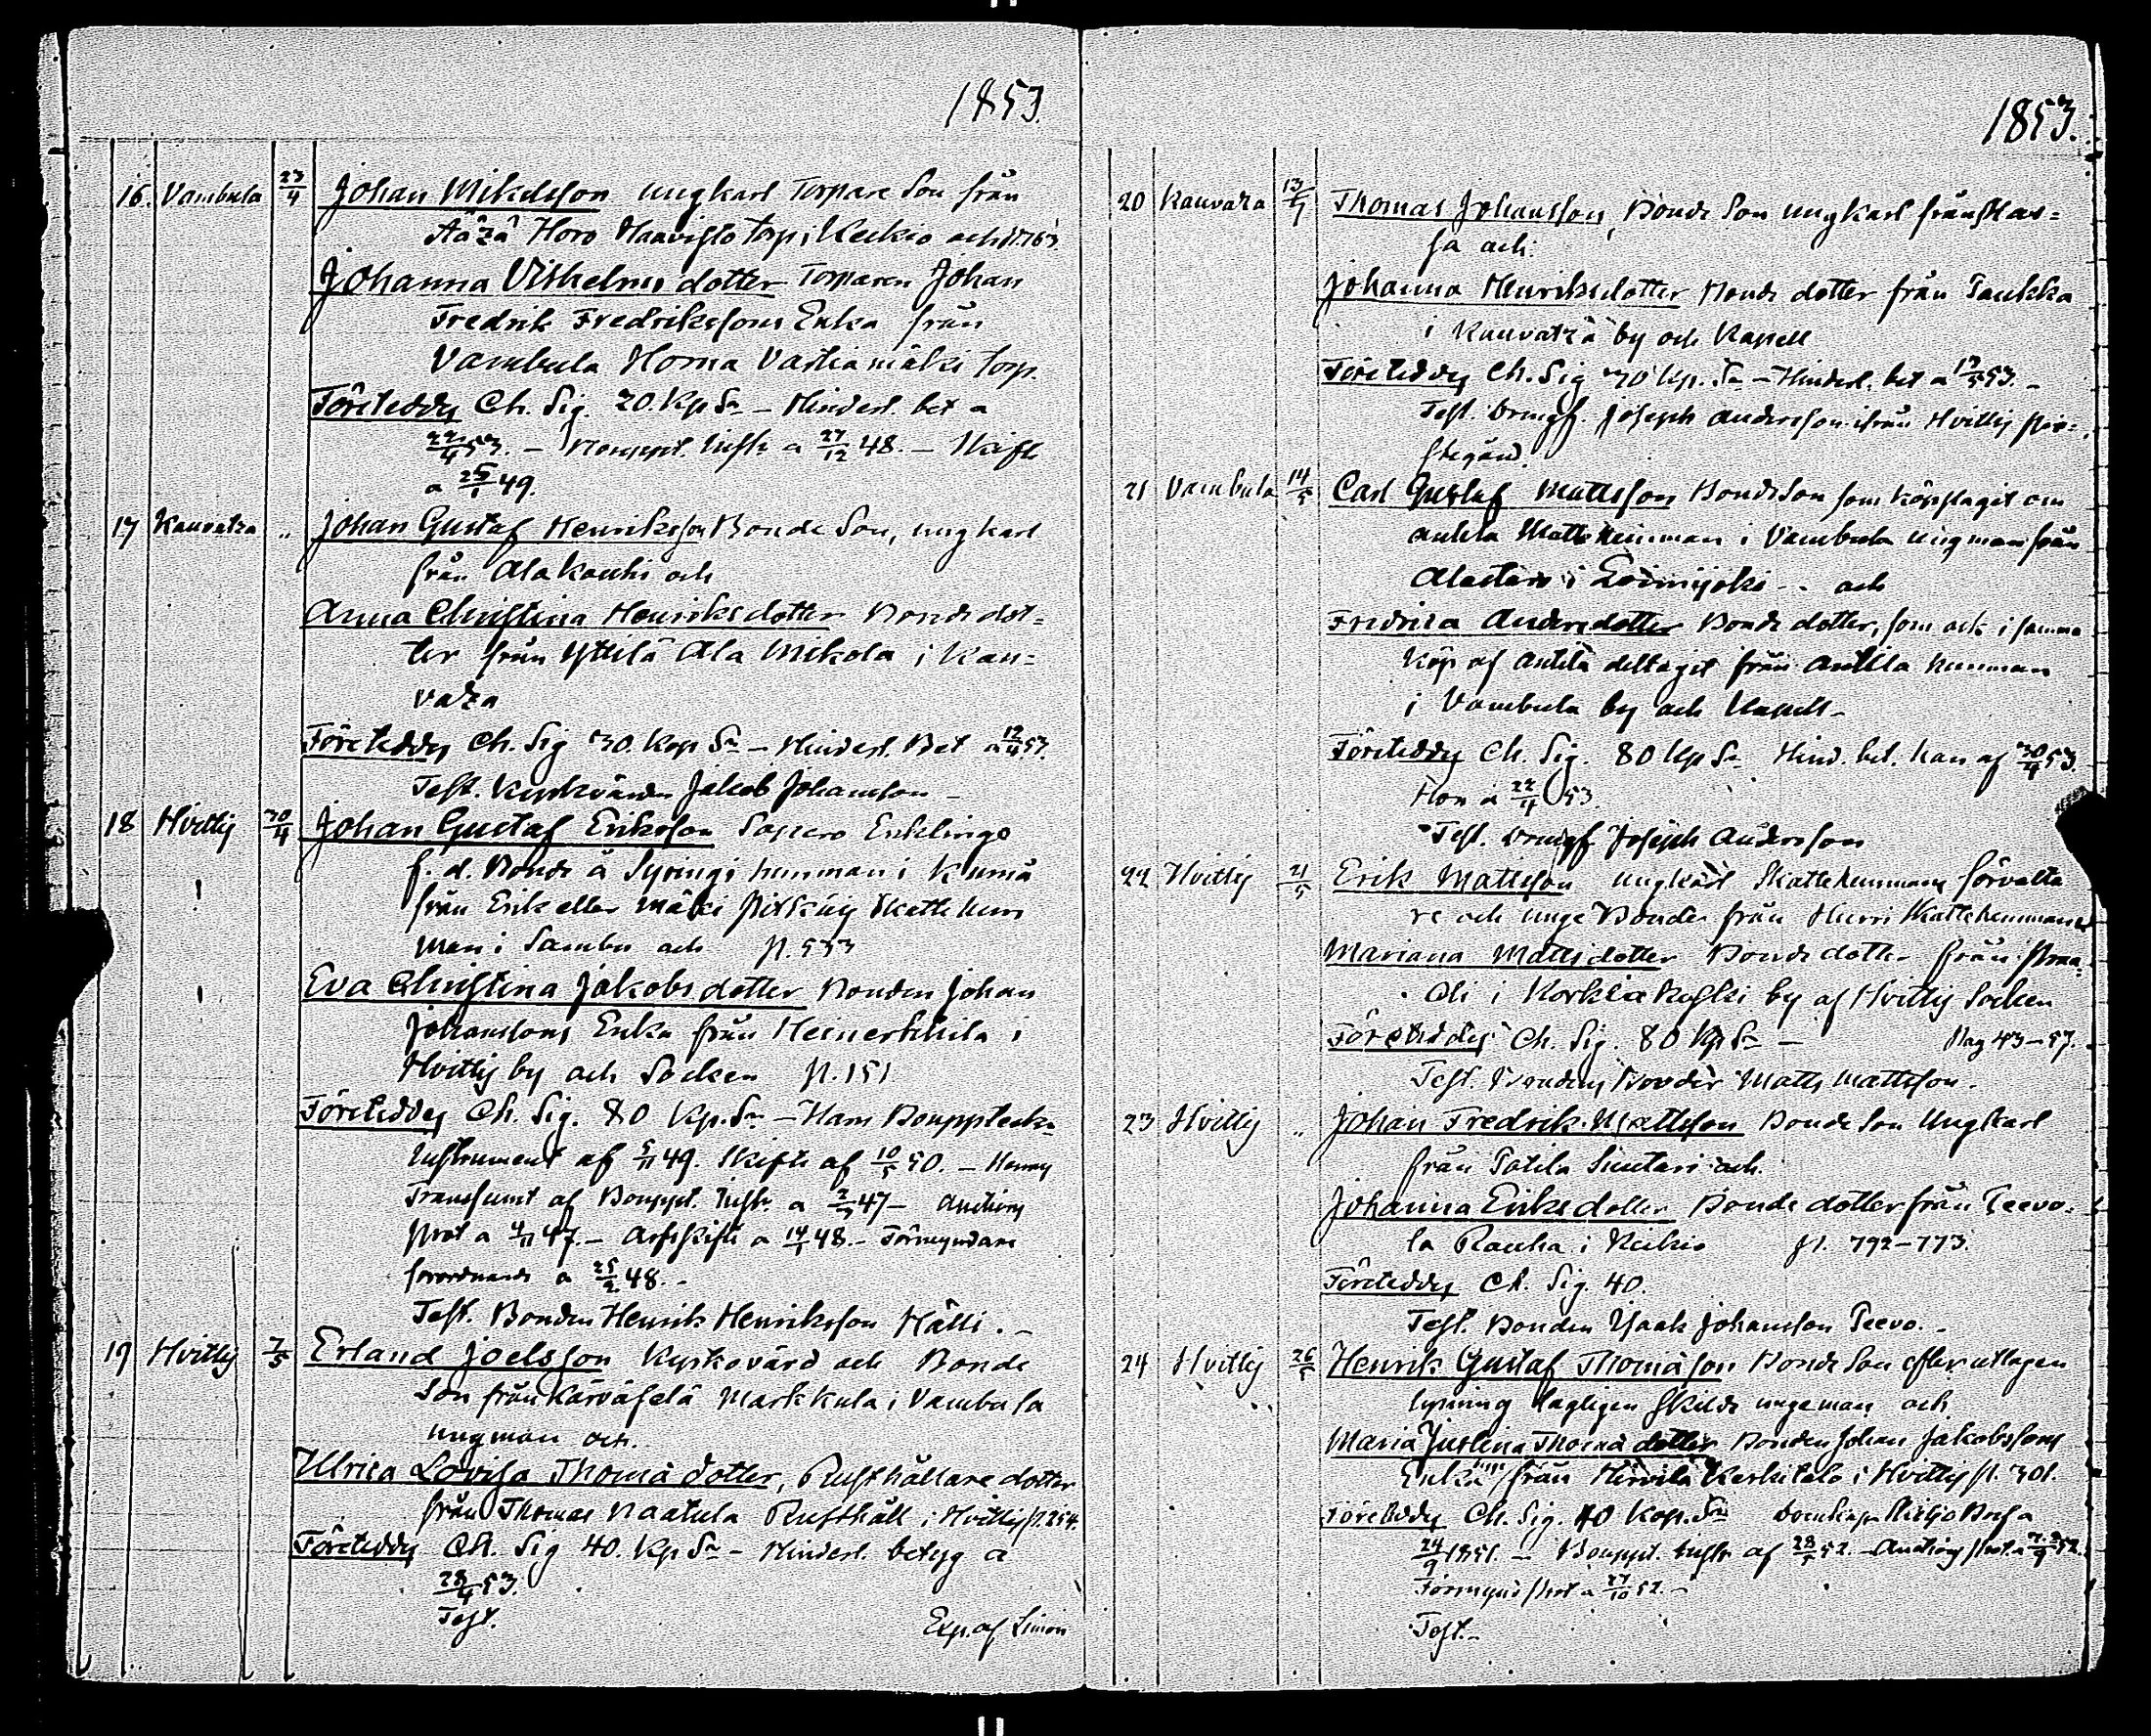 1853.
16. Vambula 23/4 Johan Mikelsson ungkarl Torpare Son från
Horo Haavisto Torp i Keikio och p. 763
Johanna Vilhelmsdotter Torparen Johan
Fredrik Fredrikssons Enka från
Vambula Horna Vastiamäki torp.
Företeddes Ch. Sig. 20. Kp Sr – Hindersl. bet a
22/4 53. – Bouppt. Instr a 27/12 48. – Skifte
a 25/1 49.
17 Kauvatza „ Johan Gustaf Henriksson Bonde Son, ungkarl
från Ala Kauhi och
Anna Christina Henriksdotter Bonde dot=
ter från Yttilä Ala Mikola i Kau=
vatza
Företeddes Ch. Sig 30. Kop Sr – Hindersl. Bet a 12/4 53.
Test. Kyrkvärden Jakob Johansson –
18 Hvittis 30/4 Johan Gustaf Eriksson Enklinge
f. d. Bonde å hemman i Kumå
från Erik eller Mäki Skatte hem
man i Sambu och p. 533
Eva Christina Jakobsdotter Bonden Johan
Johanssons Enka från i
Hvittis by och Socken p. 151
Företeddes Ch. Sig. 80 Kp. Sr – Hans Bouppteckn.
Instrument af 5/11 49. Skifte af 10/5 50. – Hennes
Transsumt af Bouppt. Instr. a 47 – Auctions
prot a 4/11 47. – Arfskifte a 14/1 48. – Förmyndare
förordnande a 25/2 48. –
Test. Bonden Henrik Henriksson Hälli. –
19 Hvittis 7/5 Erland Joelsson Kyrkovärd och Bonde
Son från Karväselä Markkula i Vambula
ungman och.
Ulrica Lovisa Thomädotter, Rusthållare dotter
från Thomas Naatula Rusthåll i Hvittis p. 254.
Företeddes Ch. Sig 40. Kp Sr – Hindersl. betyg a
28/4 53.
Test. Exp. af Simon
1853.
20 Kauvatza 13/5 Thomas Johansson, Bonde Son ungkarl från
sa och.
Johanna Henriksdotter Bonde dotter från Paukka
i Kauvatza by och Kapell
Företeddes Ch. Sig 30 Kp. Sr – Hindersl. bet a 12/5 53. –
Test. Joseph Andersson ifrån Hvittis pre=
stegård.
21 Vambula 14/5 Carl Gustaf Mattsson Bonde Son som köpslagit om
Anttila Skatte Hemman i Vambula ungman från
Alastaro i Loimijoki – och
Fredrica Andersdotter Bonde dotter, som ock i samma
köp af Anttila deltagit från Anttila hemman
i Vambula by och Kapell –
Företeddes Ch. Sig. 80 Kp Sr Hind. bet. han af 30/4 53.
Hon a 22/4 53.
Test. Joseph Andersson
22 Hvittis 21/5 Erik Mattsson ungkarl Skattehemmans förvalta
re och unge Bonde från Hurri Skattehemman
Mariana Mattsdotter Bonde dotter från
Oli i Korkiakoski by af Hvittis Socken
Företeddes Ch. Sig. 80 Kp Sr – Pag 43–57.
Test. Bondens Broder Matts Mattsson.
23 Hvittis „ Johan Fredrik Mattsson Bonde Son Ungkarl
från Potila Simtari och.
Johanna Eriksdotter Bonde dotter från Teevo=
la Rauha i Keikio p. 792–773.
Företeddes Ch. Sig. 40.
Test. Bonden Isaak Johansson Teevo. –
24 Hvittis 26/5 Henrik Gustaf Thomäson Bonde Son efter uttagen
lysning lagligen skilde ungeman och
Maria Justina Thomä dotter Bonden Johan Jakobssons
Enka från Hirvilä Keskitalo i Hvittis p. 301.
Företeddes Ch. Sig. 40 Kop. Sr Domkap. Skiljo Bref a
24/9 1851. – Bouppt. Instr. af 28/5 52. – Auctions prot. a 52.
Förmynd prot a 27/10 52. –
Test. –